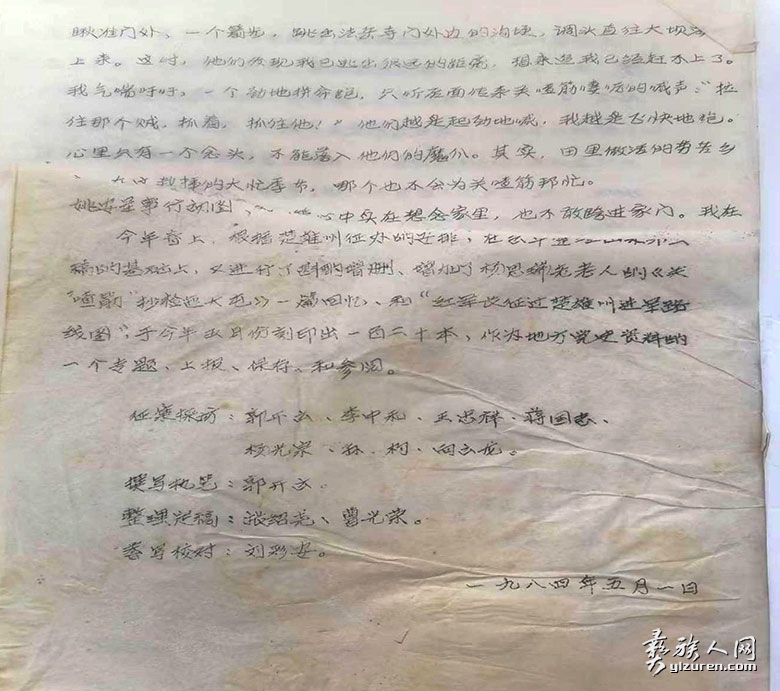 瞅准门外，一个箭步，跳出法 寺门外边的沟埂，调头直往大坝
上来。这时，他们发现我已逃出很远的距离，想来追我已经赶不上了。
我气喘吁吁，一个劲地拼命跑，只听后面传来关喳筋 的喊声："拉
住那个贼，抓着，抓住他！"他们越是起劲地喊，我越是飞快地跑。
心里只有一个念头，不能落入他们的魔爪。其实，田里做活的劳苦乡
的大忙季节，哪个也不会为关喳筋帮忙。
姚安军事行动图， 心中实在想念家里，也不敢踏进家门。我在
今年春上，根据楚雄州征办的安排，在
稿的基础上，又进行了 增删、增加了杨思 老老人的《关
"喳筋"抄检 》一篇回忆、和"红军长征过楚雄州进军路
线图"，于今年五月份刻印出一百二十本，作为地方党史资料的
一个专题、上报、保存、和参阅。
征集採访：郭开云、李中和、王忠祥、蒋国志、
杨光荣、孙 柯、向云龙。
撰写执笔：郭开云.
整理定稿：张绍尧、曹光荣。
誊写核对：刘彩安。
一九八四年五月一日
彝族人网
yizuren.com